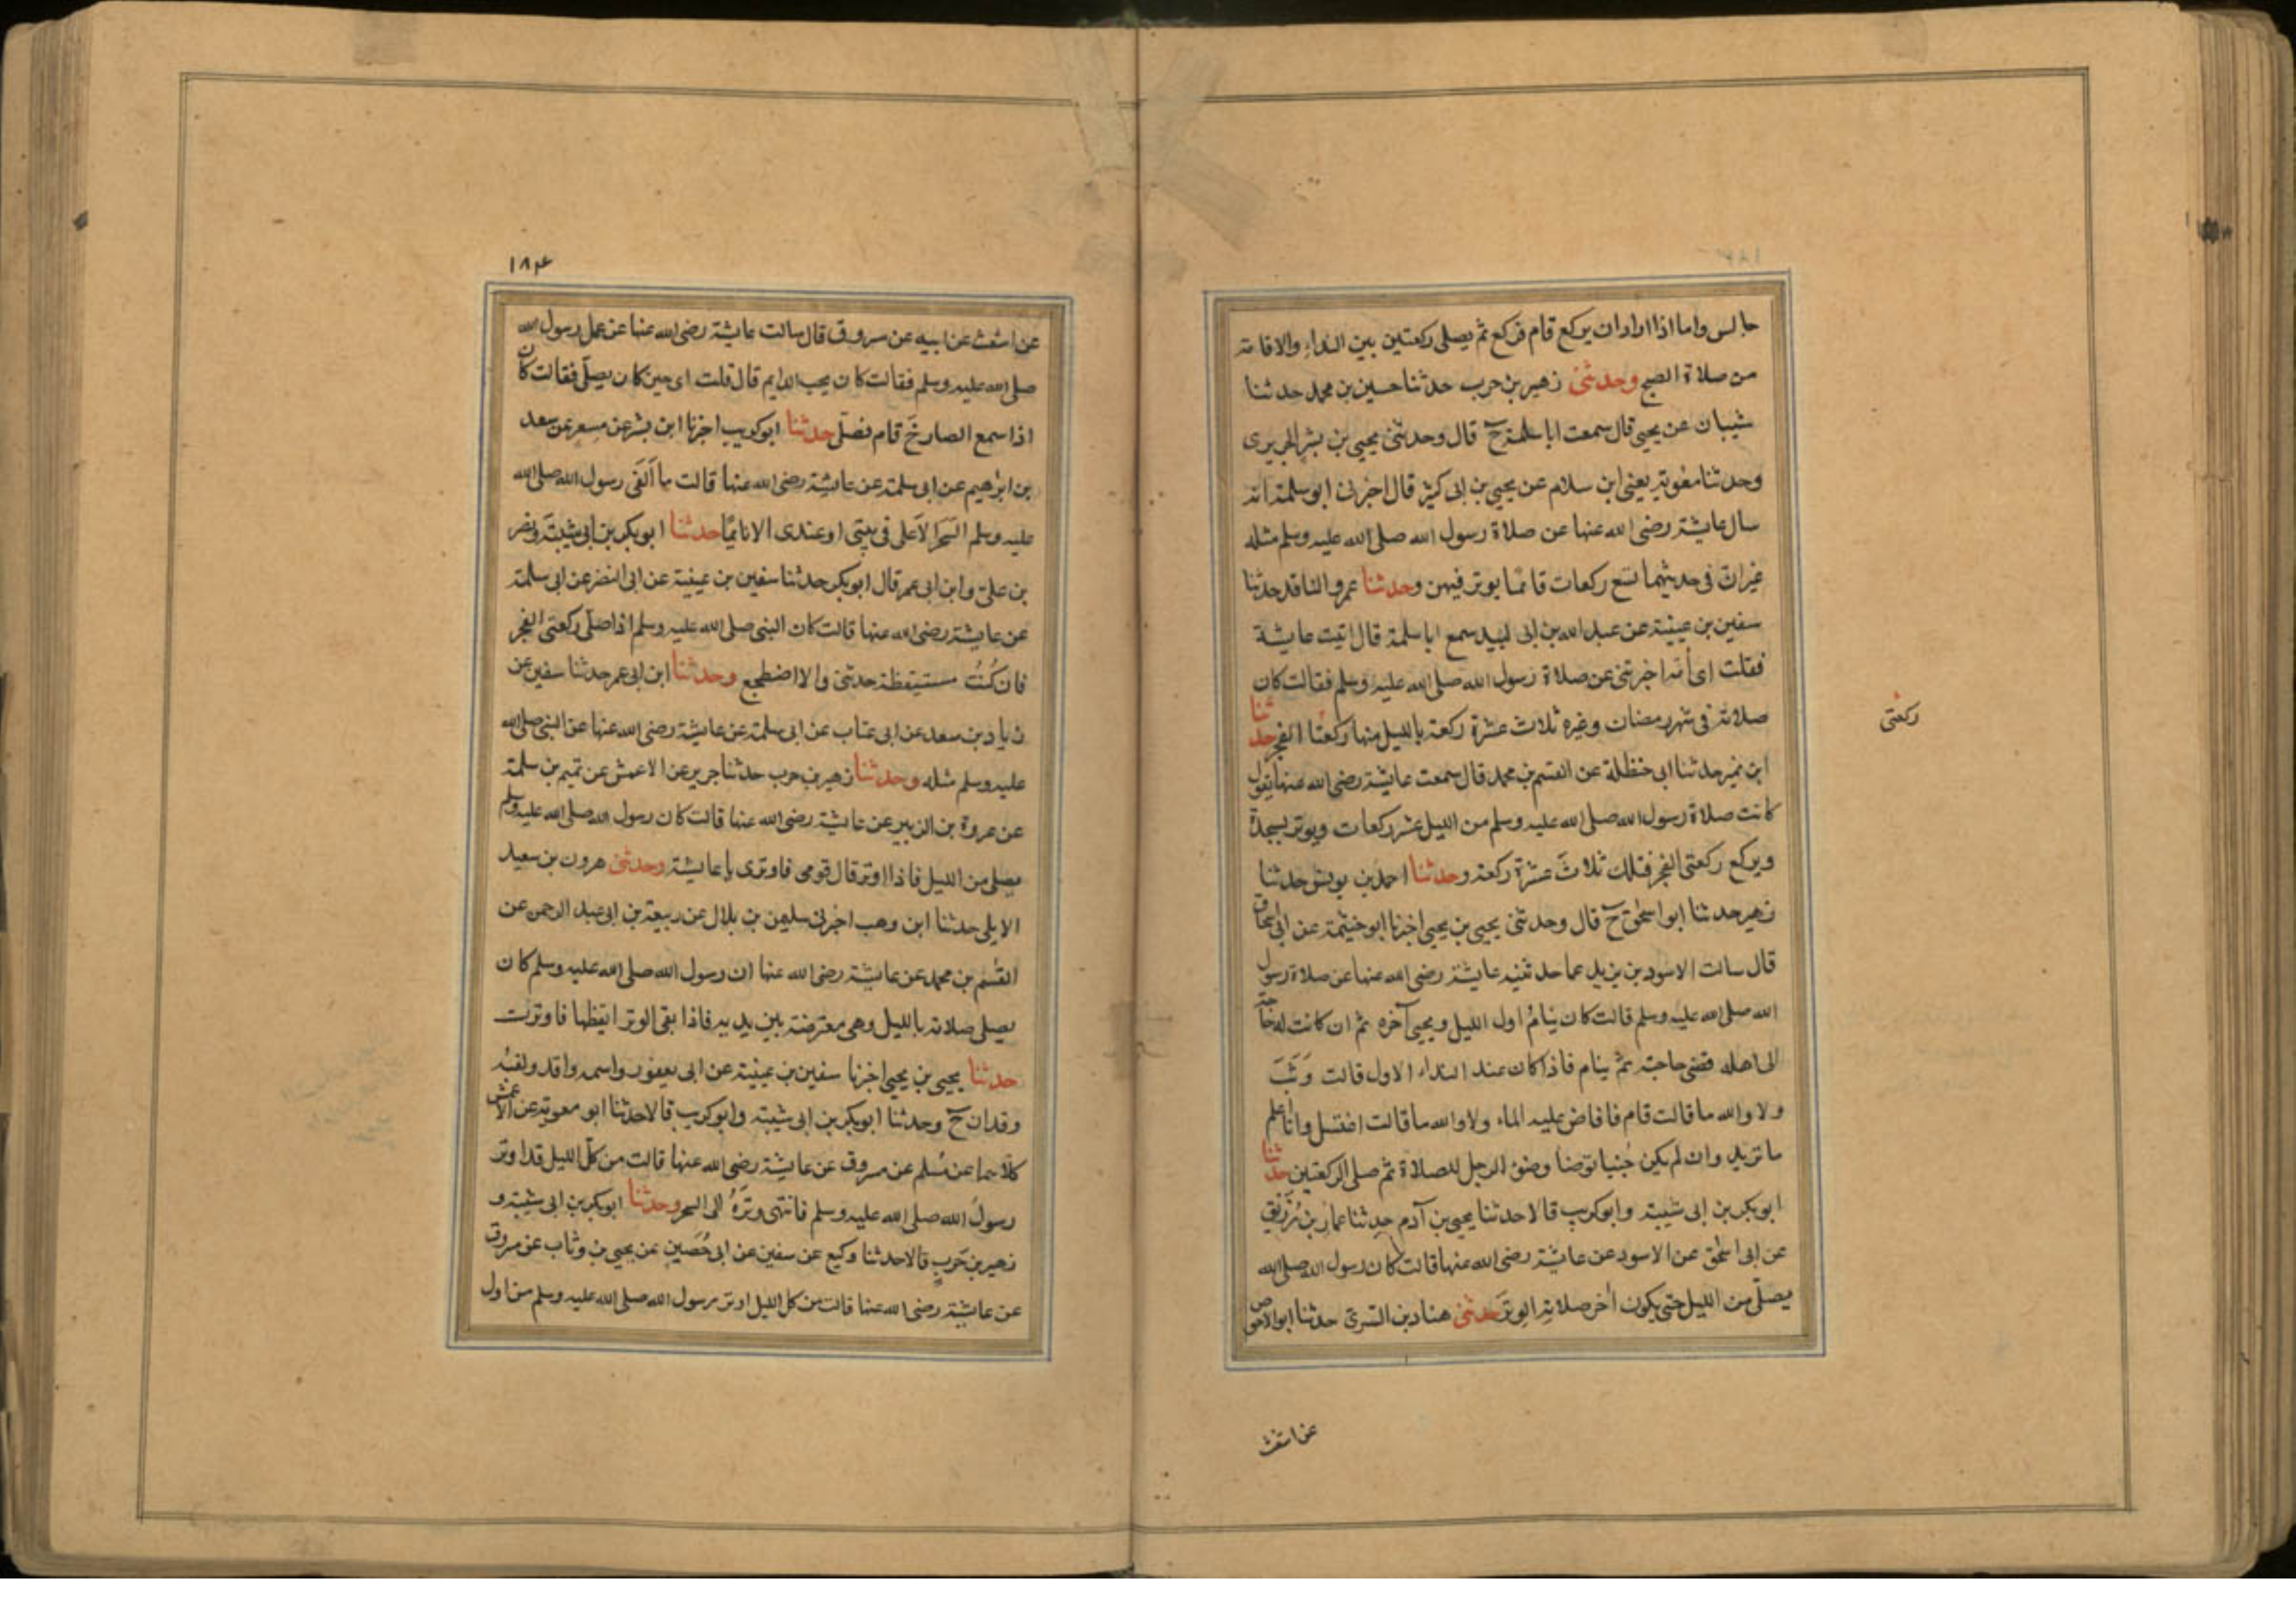 جالس واما اذا اراد ان يركع قام فركع ثم يصلى ركعتين بين النداء والاقامة
من صلاة الصبح وحدثنى زهير بن حرب حدثنا حسين بن محمد حدثنا
شيبان عن يحيى قال سمعت ابا سلمة ح قال وحدثنى يحيى بن بشر الجريرى
وحدثنا معوية يعنى ابن سلام عن يحيى بن ابى كثير قال اخبرنى ابو سلمة انه
سال عايشة رضى الله عنها عن صلاة رسول الله صلى الله عليه وسلم مثله
غير ان فى حديثهما تسع ركعات قائما يوتر فيهن وحدثنا عمرو الناقد حدثنا
سفين بن عيينة عن عبد الله بن ابى لبيد سمع ابا سلمة قال اتيت عايشة
فقلت اى أمه اخبرتنى عن صلاة رسول الله صلى الله عليه وسلم فقالت كان
صلاته فى شهر رمضان وغيره ثلاث عشرة ركعة بالليل منها ركعتا الفجر حدثنا
ركعتى
ابن نمير حدثنا ابى حنظلة عن القسم بن محمد قال سمعت عايشة رضى الله عنها يقول
كانت صلاة رسول الله صلى الله عليه وسلم من الليل عشر ركعات ويوتر بسجدة
ويركع ركعتى الفجر فتلك ثلاث عشرة ركعة وحدثنا احمد بن يونس حدثنا
زهير حدثنا ابو اسحق ح قال وحدثنى يحيى بن يحيى اخبرنا ابو خيثمة عن ابى اسحاق
قال سالت الاسود بن يزيد عما حدثنيه عايشة رضى الله عنها عن صلاة رسول
الله صلى الله عليه وسلم قالت كان ينامُ اول الليل ويحيى آخره ثم ان كانت له حاجة
الى اهله قضى حاجته ثم ينام فاذا كان عند النداء الاول قالت وَثَبَ
ولا والله ما قالت قام فافاض عليه الماء ولا والله ما قالت اغتسل وانا اعلم
ما تريد وان لم يكن جُنبا توضا وضوء الرجل للصلاة ثم صلى الركعتين حدثنا
ابو بكر بن ابى شيبة وابو كريب قالا حدثنا يحيى بن آدم حدثنا عمار بن رُزَيْق
عن ابى اسحق عن الاسود عن عايشة رضى الله عنها قالت كان رسول الله صلى الله
يصلّى من الليل حتى يكون اٰخر صلاتِه الوتر حدثنى هناد بن السرىّ حدثنا ابو الاحوص
عن اشعث
١٨٤
عن اشعث عن ابيه عن مسروق قال سالت عايشة رضى الله عنها عن عمل رسول الله
صلى الله عليه وسلم فقالت كان يحب الدايم قال قلت اى حين كان يصلّى فقالت كان
اذا سمع الصارخَ قام فصلّى حدثنا ابو كريب اخبرنا ابن بشر عن مسعر عن سعد
بن ابرٰهيم عن ابى سلمة عن عايشة رضى الله عنها قالت ما اَلْفَى رسول الله صلى الله
عليه وسلم السَحَرُ الاَعلى فى بيتى او عندى الا نائمًا حدثنا ابو بكر بن ابى شيبَة ونصر
بن علىّ وابن ابى عمر قال ابو بكر حدثنا سفين بن عيينة عن ابى النضر عن ابى سلمة
عن عايشة رضى الله عنها قالت كان النبى صلى الله عليه وسلم اذا صلّى ركعتى الفجر
فان كُنتُ مستيقظة حدثنى والا اضطجع وحدثنا ابن ابى عمر حدثنا سفين عن
زياد بن سعد عن ابى عتاب عن ابى سلمة عن عايشة رضى الله عنها عن النبى صلى الله
عليه وسلم مثله وحدثنا زهير بن حرب حدثنا جرير عن الاعمش عن تميم بن سلمة
عن عروة بن الزبير عن عايشة رضى الله عنها قالت كان رسول الله صلى الله عليه وسلم
يصلى من الليل فاذا اوتر قال قومى فاوترى يا عايشة وحدثنى هرون بن سعيد
الايلى حدثنا ابن وهب اخبرنى سليمن بن بلال عن ربيعة بن ابى عبد الرحمن عن
القسٰم بن محمد عن عايشة رضى الله عنها ان رسول الله صلى الله عليه وسلم كان
يصلى صلاته بالليل وهى معترضة بين يديه فاذا بقى الوتر ايقظها فاوترت
حدثنا يحيى بن يحيى اخبرنا سفين بن عيينة عن ابى يعفور واسمه واقد ولقبُه
وقدان ح وحدثنا ابو بكر بن ابى شيبة وابو كريب قالا حدثنا ابو معوية عن الاعمش
كلاهما عن مُسلم عن مسروق عن عايشة رضى الله عنها قالت من كل الليل قد اوتر
رسولُ الله صلى الله عليه وسلم فانتهى وترُهُ الى السحر وحدثنا ابو بكر بن ابى شيبة و
زهير بن حَربٍ قالا حدثنا وكيع عن سفين عن ابى حُصَين عن يحيى بن وثاب عن مسروق
عن عايشة رضى الله عنها قالت من كل الليل اوتر رسول الله صلى الله عليه وسلم من اول